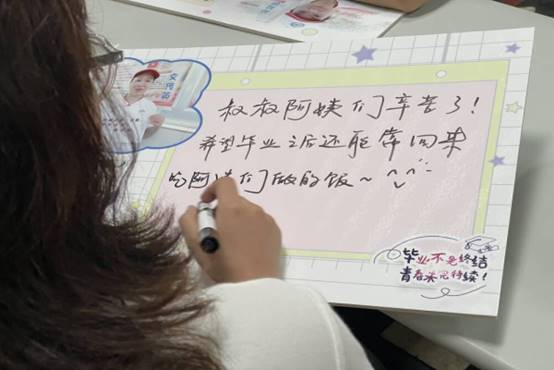 叔叔阿姨们辛苦了！
希望毕业之后还能常回来
吃阿姨们做的饭~
毕业不是终结
青春未完待续！